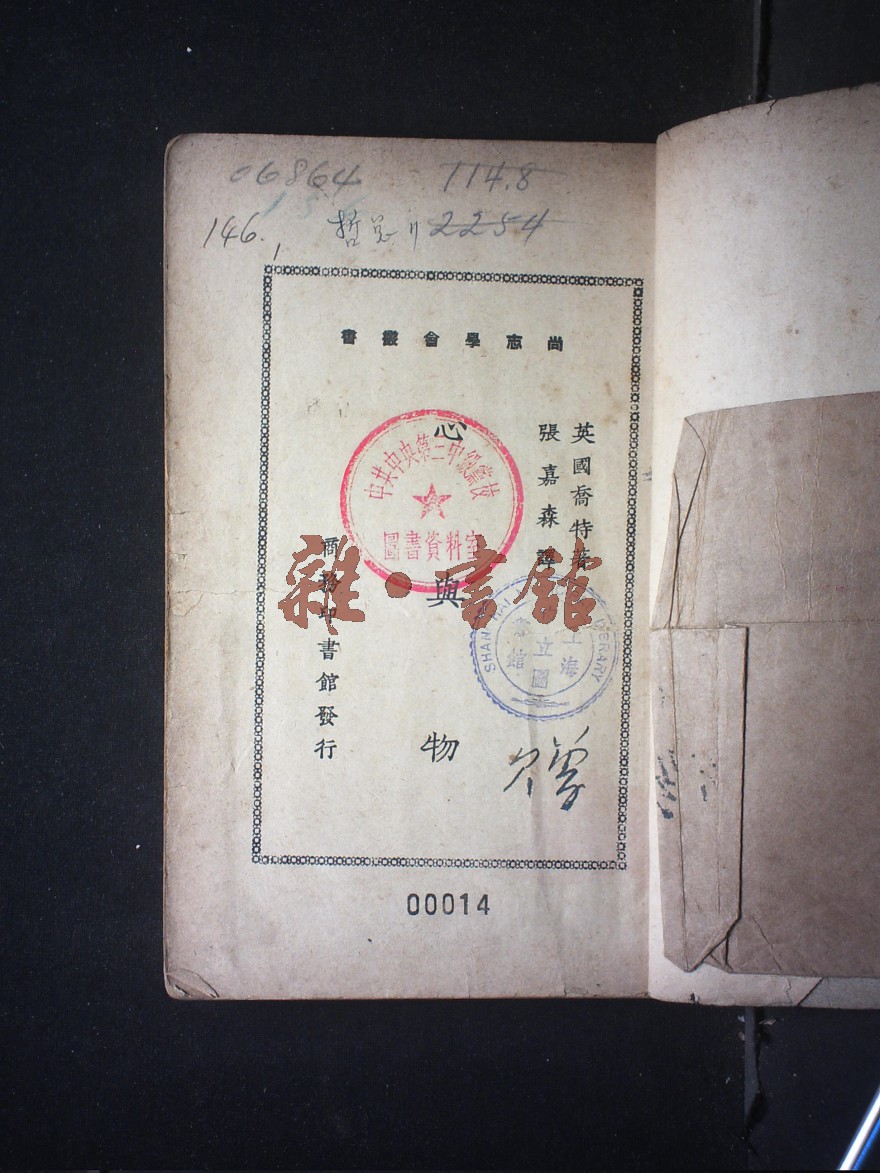 06864 114.8
146.1 哲 2254
尚志學會叢書
英國喬特著
張嘉森譯
心與物
商務印書館發行
中共中央第三中級黨校
圖書資料室
雜·書館
SHANGHAI LIBRARY
上海
市立圖
書館
00014